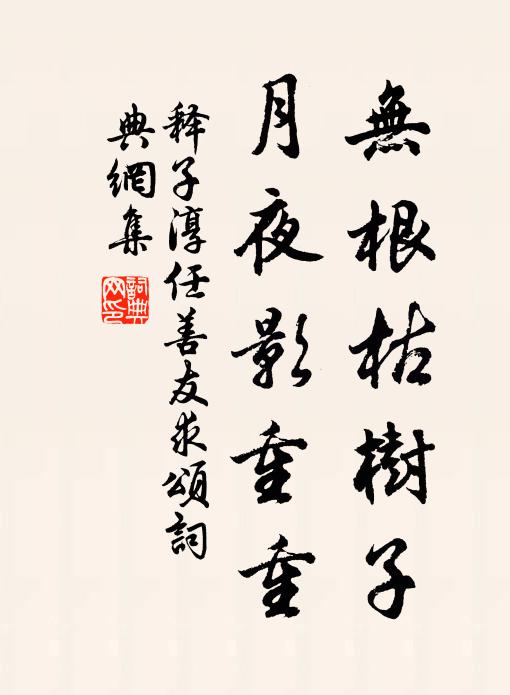 無根枯樹子
月夜影重重
释子淳任善友求頌詞
典網集
詞典
网印